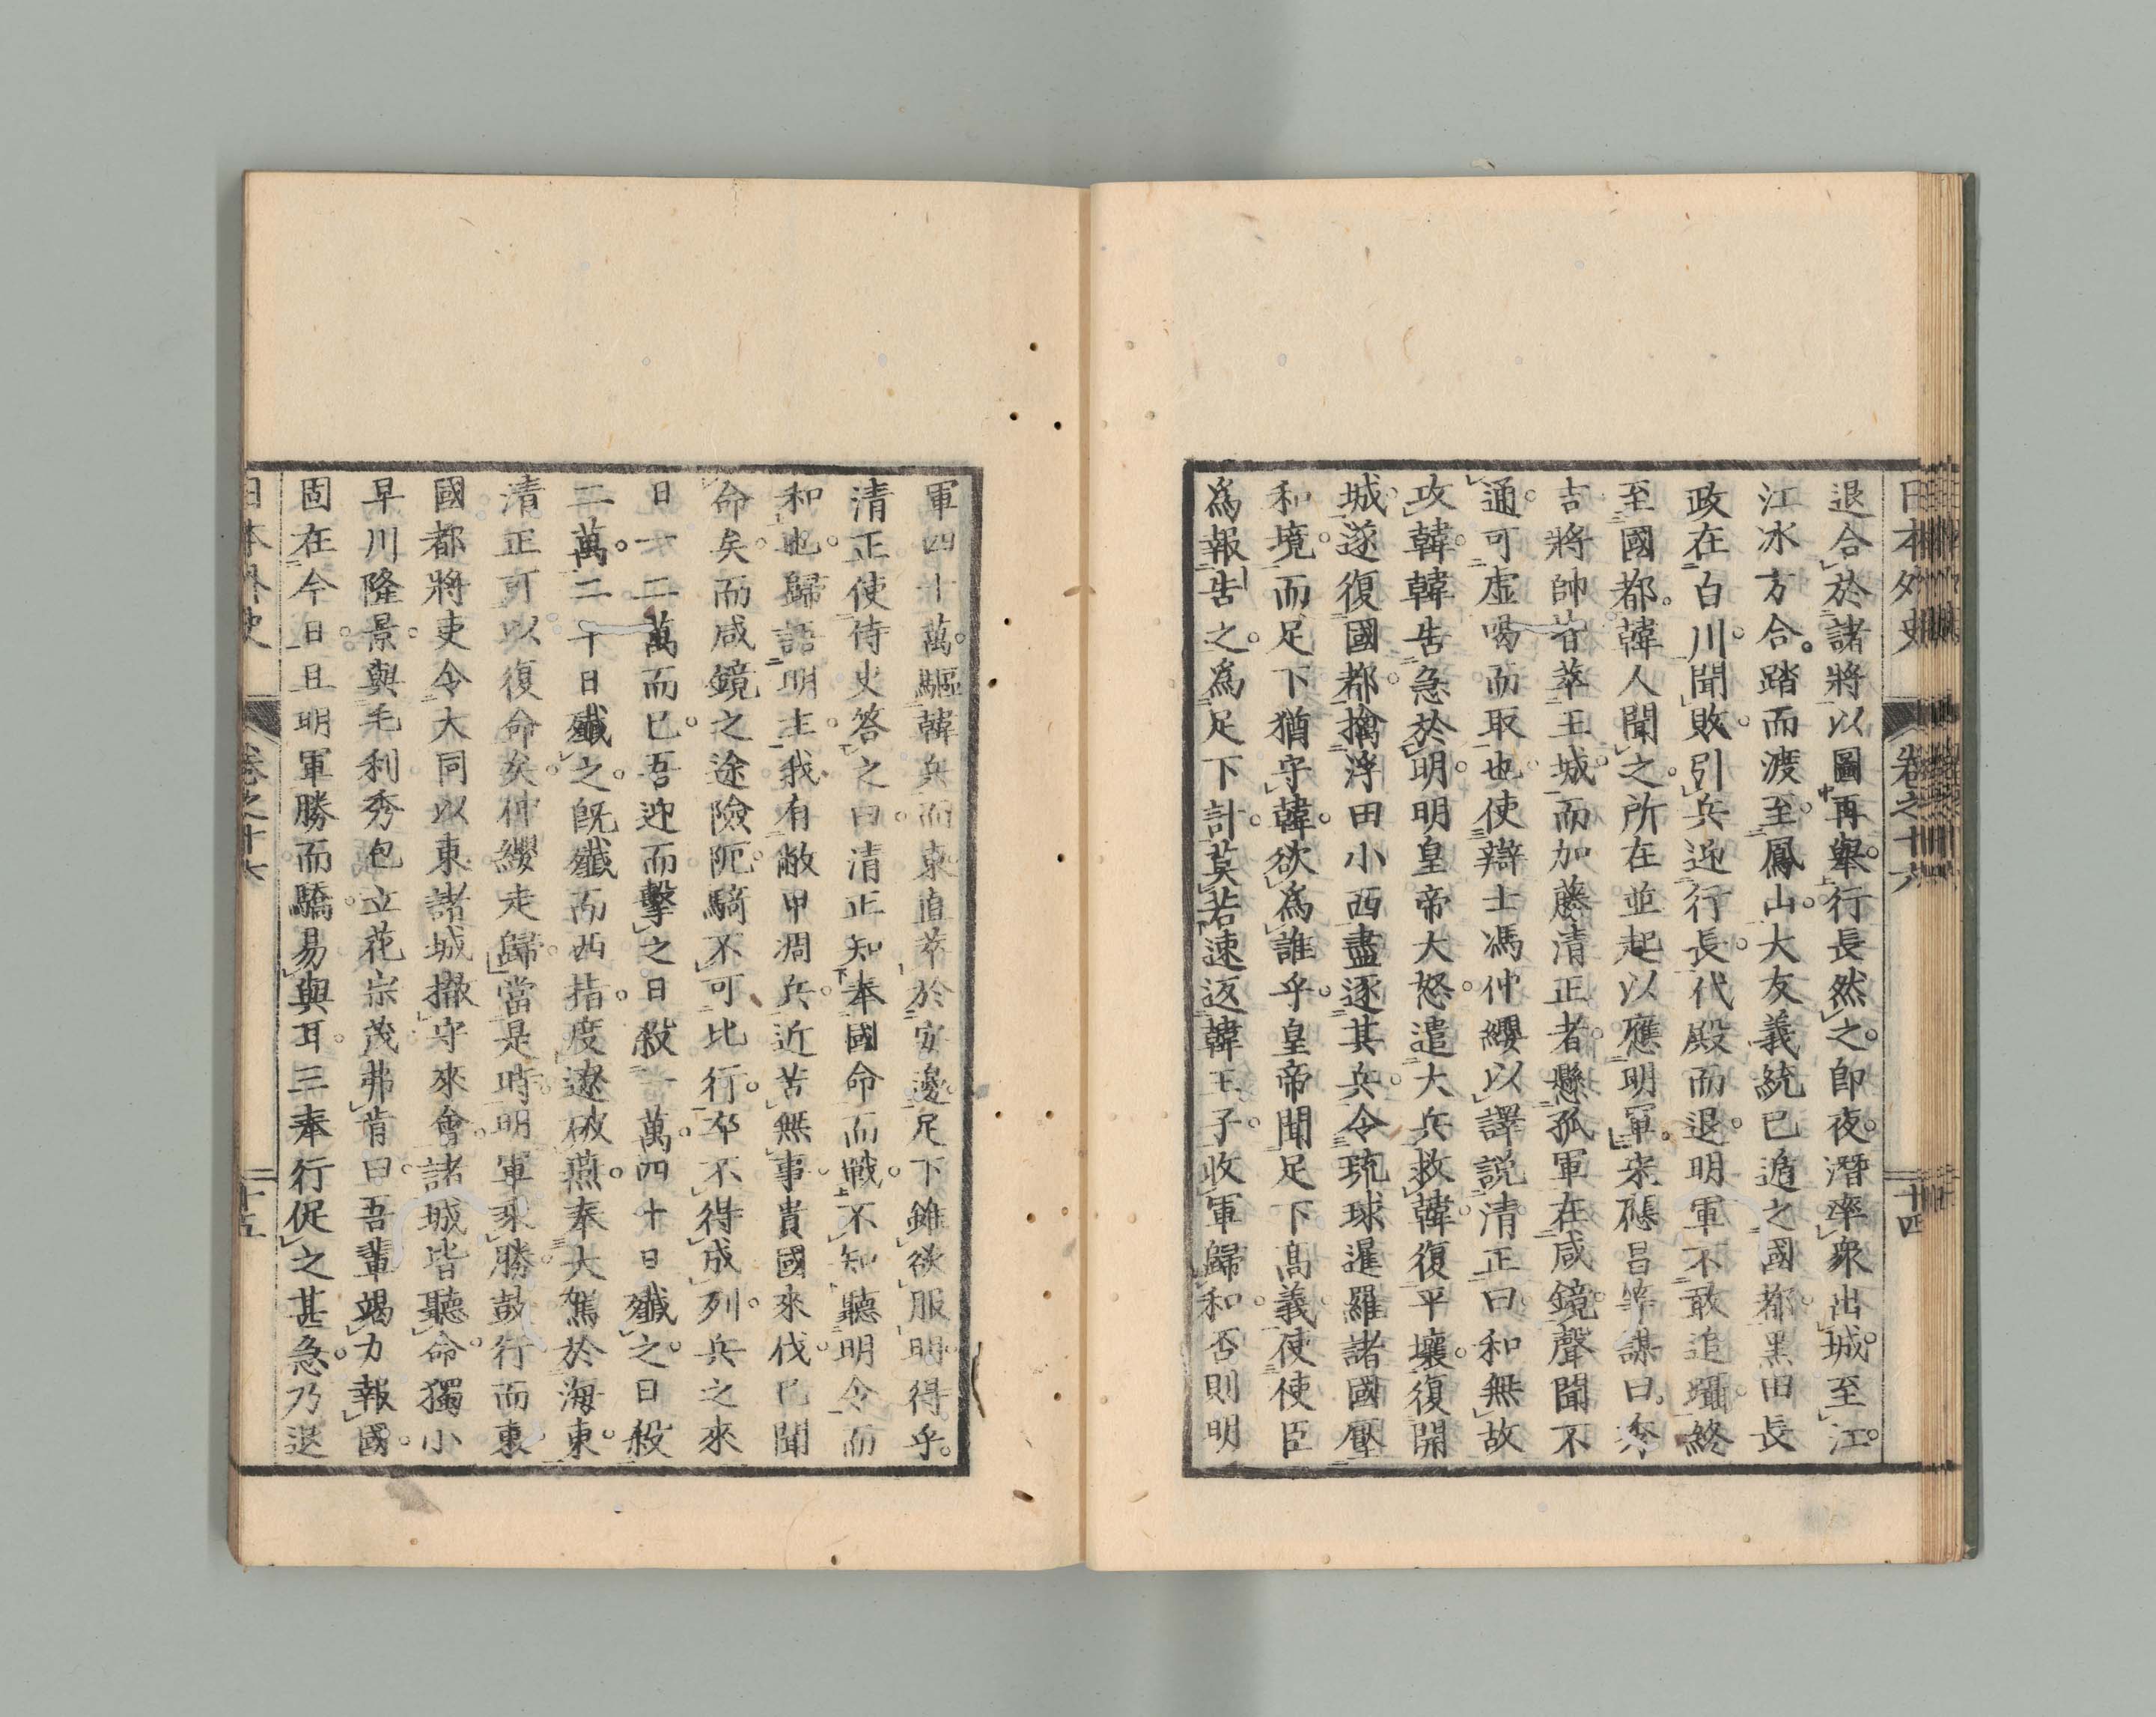 日本外史 卷之十六 十四
退合於諸將以圖再舉。行長然之。即夜。潛率衆出城。至江。
江冰方合。踏而渡。至鳳山。大友義統已遁之國都。黑田長
政在白川。聞敗。引兵迎行長。代殿而退。明軍不敢追躡。終
至國都。韓人聞之。所在並起。以應明軍。宋應昌等謀曰。秀
吉將帥皆萃王城。而加藤清正者。懸孤軍在咸鏡。聲聞不
通。可虛喝而取也。使辯士馮仲纓以譯説清正曰。和無故
攻韓。韓告急於明。明皇帝大怒。遣大兵救韓。復平壤。復開
城。遂復國都。擒浮田小西。盡逐其兵。令琉球暹羅諸國壓
和境。而足下猶守韓。欲爲誰乎。皇帝聞足下高義。使使臣
爲報告之。爲足下計。莫若速返韓王子。收軍歸和。否則明
軍四十萬。驅韓兵而東。直萃於安邊。足下雖欲服明。得乎。
清正使侍史答之曰。清正知奉國命而戰。不知聽明令而
和也。歸語明主。我有敝甲凋兵。近苦無事。貴國來伐。已聞
命矣。而咸鏡之途險阨。騎不可比行。卒不得成列。兵之來
日一二萬而已。吾迎而擊之。日殺一萬。四十日殲之。日殺
二萬。二十日殲之。既殲而西指。度遼破燕。奉大駕於海東。
清正可以復命矣。仲纓走歸。當是時。明軍乘勝。鼓行而東。
國都將吏令大同以東諸城撤守來會。諸城皆聽命。獨小
早川隆景與毛利秀包立花宗茂弗肯曰。吾輩竭力報國。
固在今日。且明軍勝而驕。易與耳。三奉行促之甚急。乃退
日本外史 卷之十六 十五